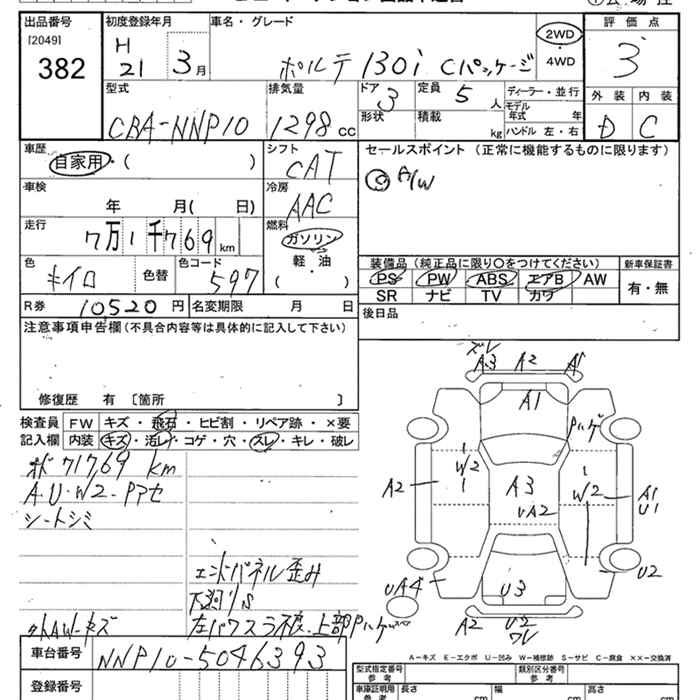 出品番号
[2049]
382
初度登録年月
H
21 3月
車名・グレード
ポルテ 130i Cパッケージ
2WD
・
4WD
評価点
3
外装 内装
D C
型式
CBA-NNP10
排気量
1298 cc
ドア
3
定員
5 人
形状
積載
kg
ディーラー・並行
モデル
年式 年
ハンドル 左・右
車歴
自家用・( )
シフト
CAT
車検
年 月( 日)
冷房
AAC
走行
7万1千769 km
燃料
ガソリン
・
軽油
( ・ )
色
キイロ
色替
色コード
597
R券
10520 円
名変期限 月 日
セールスポイント (正常に機能するものに限ります)
A/W
装備品(純正品に限り○をつけてください)
PS PW ABS エアB AW
SR ナビ TV カワ
新車保証書
有・無
後日品
注意事項申告欄(不具合内容等は具体的に記入して下さい)
修復歴 有 〔箇所 〕
検査員
記入欄
FW キズ・飛石・ヒビ割・リペア跡・×要
内装 キズ・汚レ・コゲ・穴・スレ・キレ・破レ
71769 km
A・U・W2-Pアセ
シートシミ
エンドパネル歪み
下廻リS
外AW-キズ
車台番号
NNP10-5046393
登録番号
ズレ
A3 A2 A1
A1
Pハゲ
W2
A2
A3
W2
A1
U1
UA2
U2
UA4
U3
A2
U2
ワレ
A-キズ E-エクボ U-凹み W-補修跡 S-サビ C-腐食 ××-交換済
型式指定番号
参考
類別区分番号
参考
車庫証明用
参考
長さ
cm
幅
cm
高さ
cm